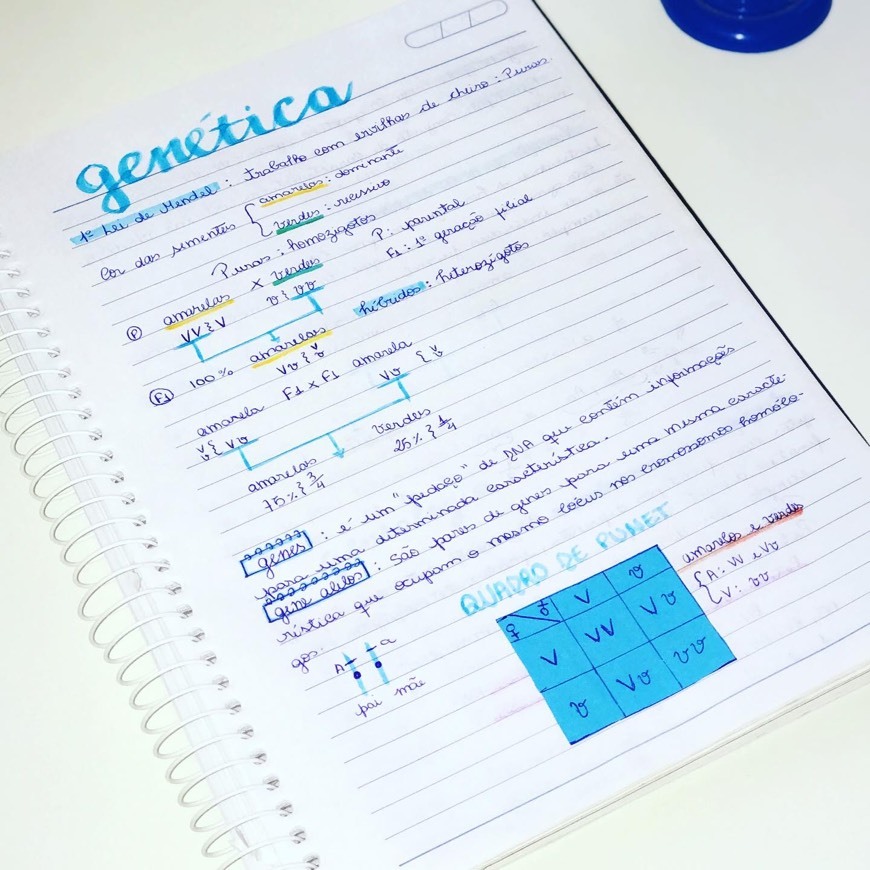 genética
1ª Lei de Mendel: trabalho com ervilhas de cheiro: Puras
Cor das sementes { amarelas: dominante
verdes: recessivo
Puras: homozigotos
P: parental
F1: 1ª geração filial
P amarelas X verdes
VV } V v { vv
híbridos: heterozigotos
F1 100% amarelas
Vv { V v
F1 x F1
amarela amarela
V v { Vv Vv { V v
amarelas verdes
75% } 3/4 25% } 1/4
genes: é um "pedaço" de DNA que contém informações
para uma determinada característica.
gene alelos: São pares de genes para uma mesma caracte-
rística que ocupam o mesmo lócus nos cromossomos homólo-
gos.
A a
pai mãe
QUADRO DE PUNET
♀ ♂ V v
V VV Vv
v Vv vv
amarelos e verdes
{ A: VV e Vv
V: vv